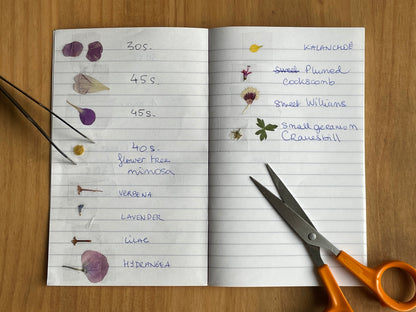 30s.
45s.
45s.
40s.
flower tree
mimosa
VERBENA
LAVENDER
LILAC
HYDRANGEA
KALANCHOË
sweet Plumed
Cockscomb
Sweet Williams
Small geranium
Cranesbill